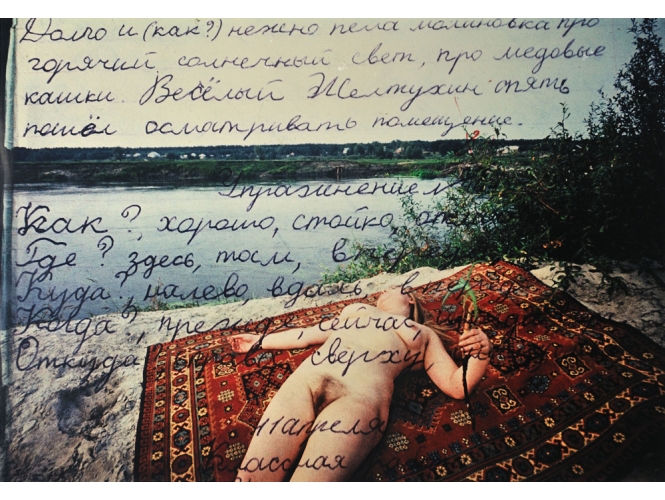 Долго и (как?) нежно пела малиновка про
горячий солнечный свет, про медовые
кашки. Весёлый Желтухин опять
пошёл осматривать помещение.
Упражнение
Как?, хорошо, стойко,
Где? здесь, там,
Куда?, налево, вдаль
Когда?, прежде, сейчас,
Откуда сверху,
11 апреля
Классная